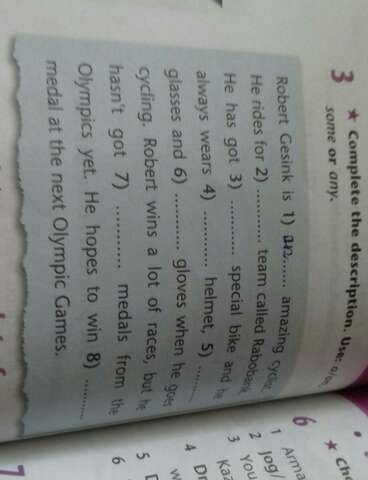 3 ★ Complete the description. Use: a/an,
some or any.
Robert Gesink is 1) an...... amazing cyclist.
He rides for 2) .......... team called Rabobank.
He has got 3) .......... special bike and he
always wears 4) .......... helmet, 5) ..........
glasses and 6) .......... gloves when he goes
cycling. Robert wins a lot of races, but he
hasn't got 7) .......... medals from the
Olympics yet. He hopes to win 8) ..........
medal at the next Olympic Games.
6 ★
1
2 Jog/
3 You
4
5
6
7